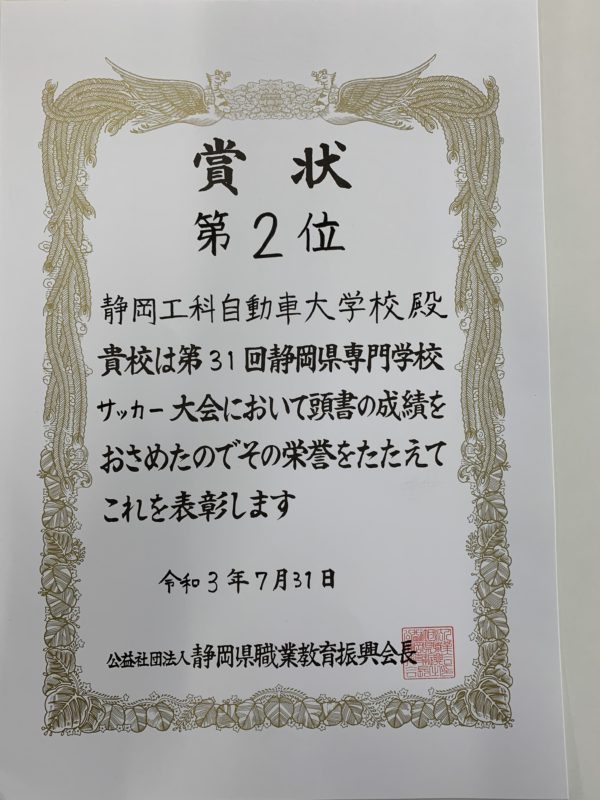 賞状
第2位
静岡工科自動車大学校殿
貴校は第31回静岡県専門学校
サッカー大会において頭書の成績を
おさめたのでその栄誉をたたえて
これを表彰します
令和3年7月31日
公益社団法人静岡県職業教育振興会長